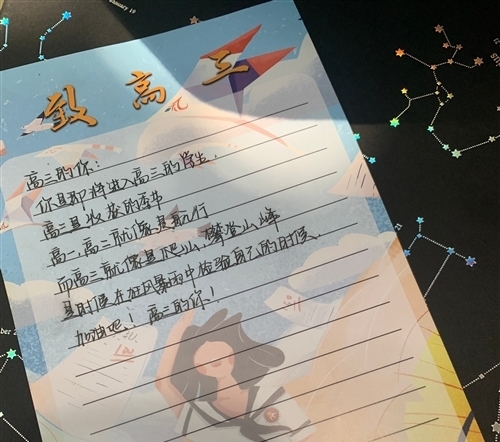 致高三
高三的你:
你是即将进入高三的学生.
高三是收获的季节
高一,高二就像是旅行
而高三就像是爬山,攀登山峰
是时候在狂风暴雨中检验自己的时候.
加油吧!高三的你!